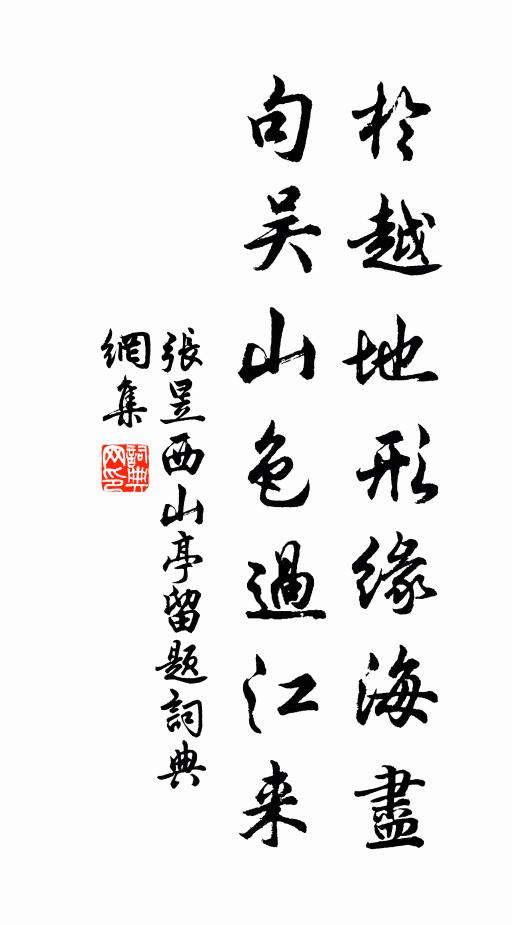 於越地形緣海盡
句吴山色過江来
張昱西山亭留題詞典
網集
詞典
网印